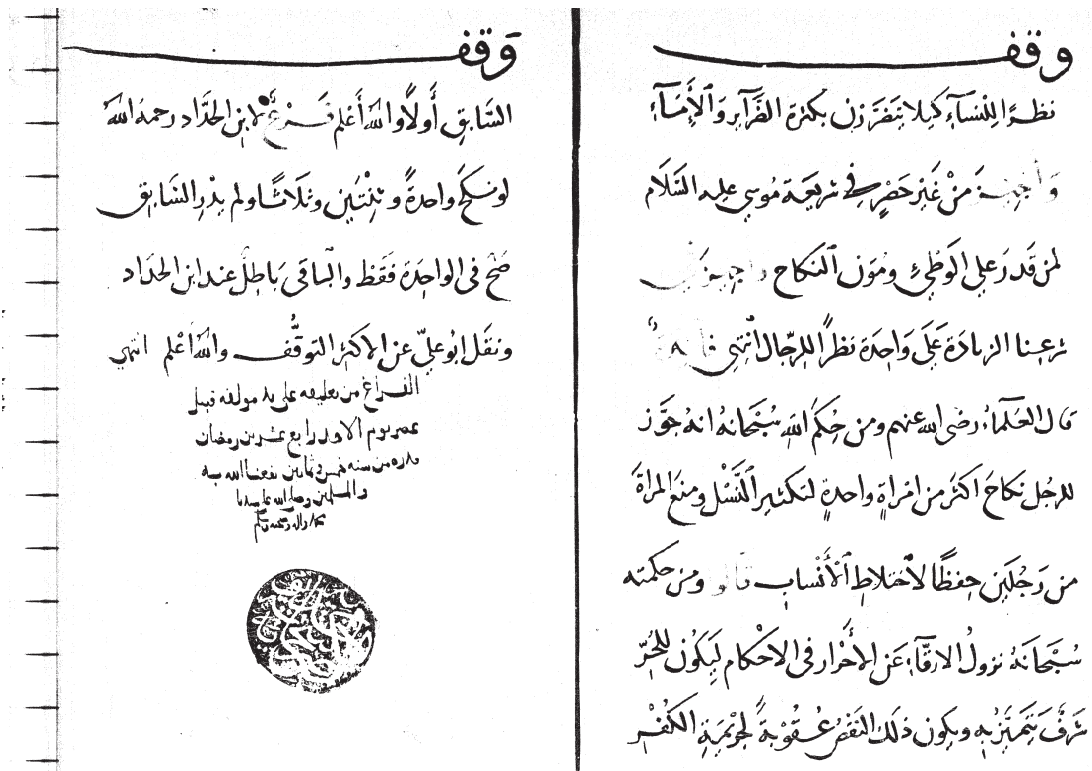 وقف
نظرًا للنسآء كيلا يتضررن بكثرة الضرآير والأمآء
من غير حصرٍ في شريعة موسى عليه السلام
لمن قدر على الوطئ ومؤن النكاح
شرعنا الزيادة على واحدة نظرًا للرجال انتهى
قال العلمآء رضى الله عنهم ومن حكم الله سبحانه انه جوز
للرجل نكاح اكثر من امراةٍ واحدةٍ لتكثير النسل ومنع المراة
من رجلين حفظًا لاختلاط الأنساب ومن حكمته
سبحانه نزول الارقآء عن الأحرار في الاحكام ليكون للحرّ
شرفٌ يتميز به ويكون ذلك النقص عقوبةً لجريمة الكفر
وقف
السّابق أولًا والله أعلم فرعٌ لابن الحدّاد رحمه الله
لو نكح واحدةً وثنتين وثلاثًا ولم يدر السّابق
صحّ في الواحدة فقط والباقى باطلٌ عند ابن الحدّاد
ونقل ابو عليّ عن الاكثر التوقّف والله أعلم انتهى
الفراغ من تعليقه على يد مولفه قبيل
عصر يوم الاحد رابع عشرين رمضان
من سنه خمس وثمانين نفعنا الله به
والمسلمين وصلى الله على سيدنا
محمد واله وصحبه وسلم